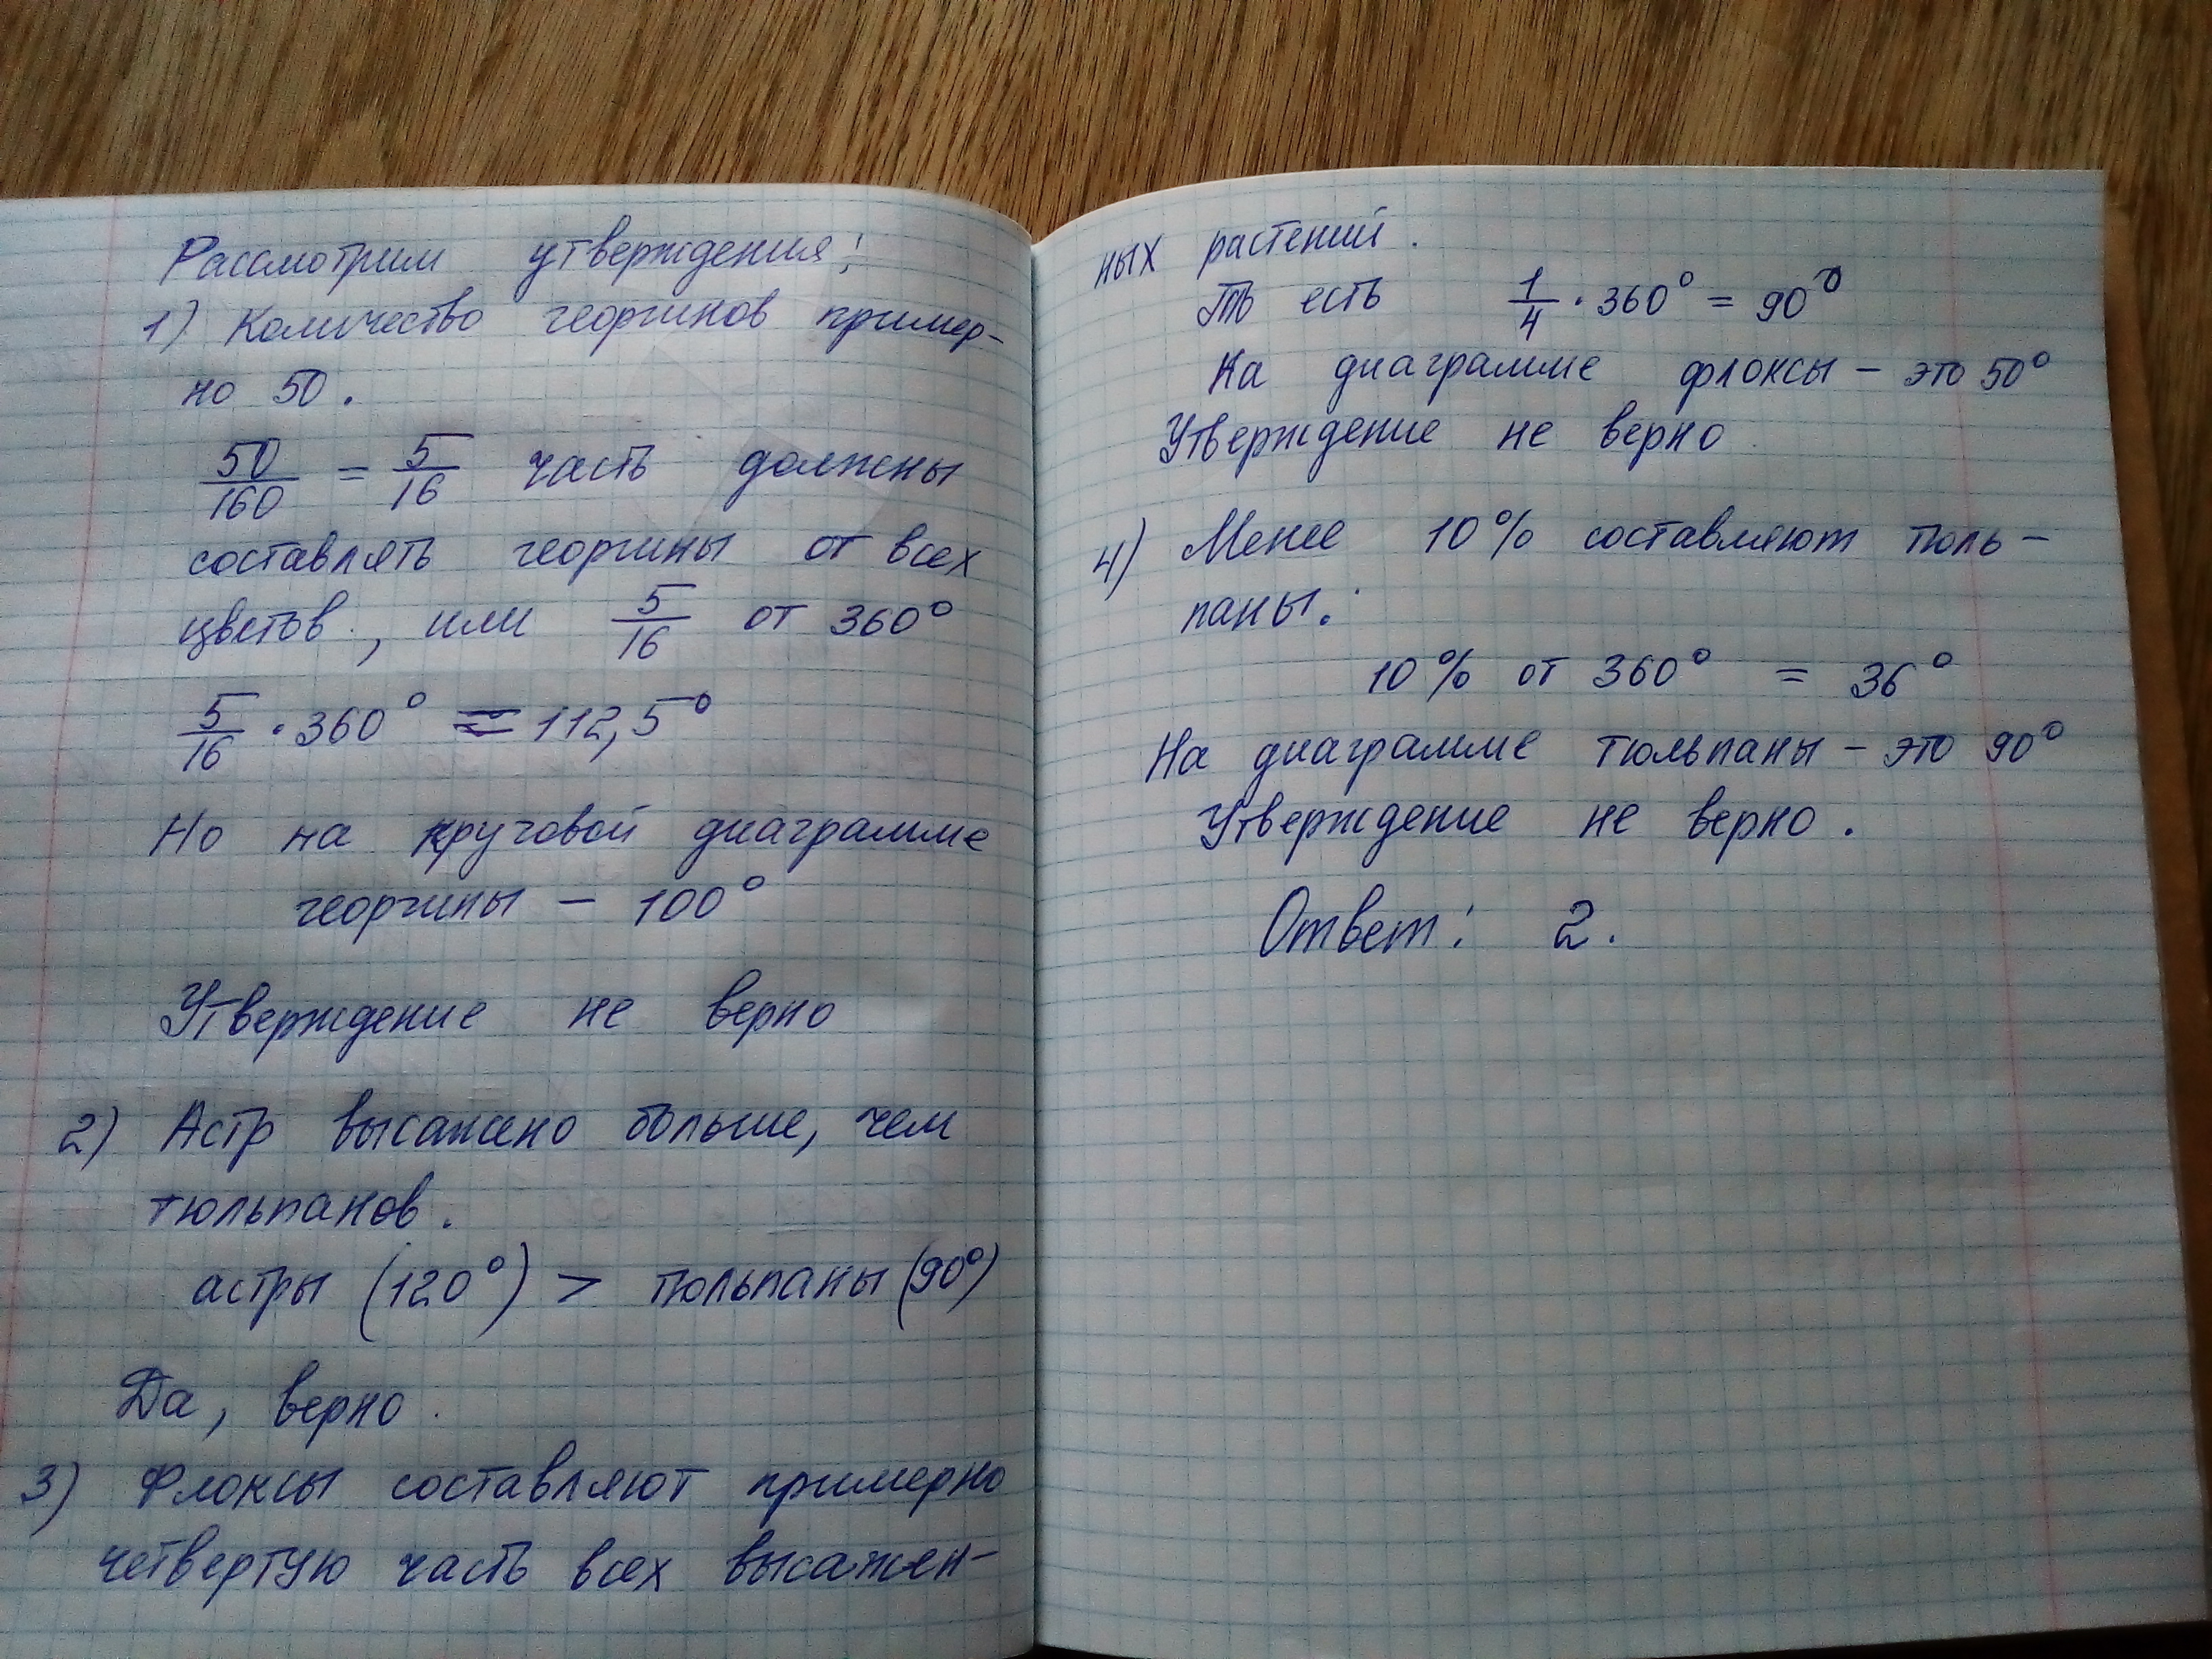 Рассмотрим утверждения:
1) Количество георгинов пример-
но 50.
50/160 = 5/16 часть должны
составлять георгины от всех
цветов, или 5/16 от 360°
5/16 · 360° = 112,5°
Но на круговой диаграмме
георгины – 100°
Утверждение не верно
2) Астр высажено больше, чем
тюльпанов.
астры (120°) > тюльпаны (90°)
Да, верно.
3) Флоксы составляют примерно
четвертую часть всех высажен-
ных растений.
То есть 1/4 · 360° = 90°
На диаграмме флоксы – это 50°
Утверждение не верно
4) Менее 10% составляют тюль-
паны.
10% от 360° = 36°
На диаграмме тюльпаны – это 90°
Утверждение не верно.
Ответ: 2.